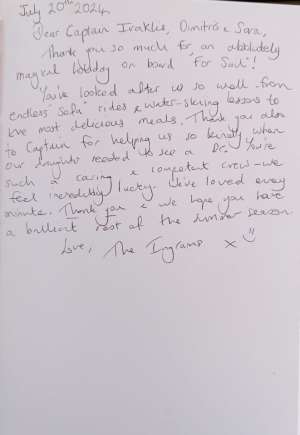 July 20th 2024
Dear Captain Iraklis, Dimitris & Sara,
Thank you so much for an absolutely
magical holiday on board "For Sail"!
You've looked after us so well - from
endless 'Sofa' rides & water-skiing lessons to
the most delicious meals. Thank you also
to Captain for helping us so kindly when
our daughter needed to see a Dr. You're
such a caring & competent crew - we
feel incredibly lucky. We've loved every
minute. Thank you & we hope you have
a brilliant rest of the summer season.
Love, The Ingrams x